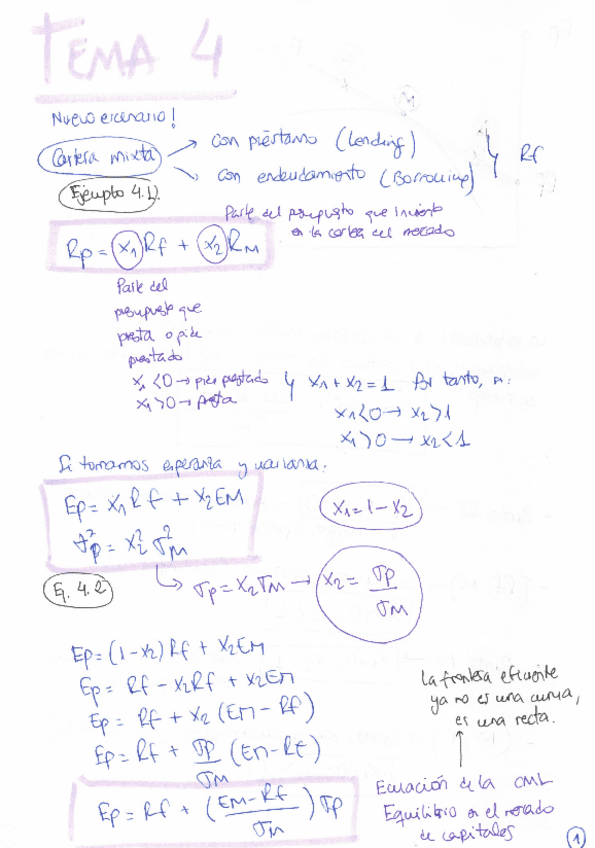 TEMA 4
Nuevo escenario!
Cartera mixta → con préstamo (Lending)
↘ con endeudamiento (Borrowing) y Rf
Ejemplo 4.1).
Parte del presupuesto que invierto
en la cartera del mercado
Rp = x1 Rf + x2 RM
Parte del
presupuesto que
presta o pide
prestado
x1 < 0 → pide prestado
x1 > 0 → presta
y x1 + x2 = 1 Por tanto, si:
x1 < 0 → x2 > 1
x1 > 0 → x2 < 1
Si tomamos esperanza y varianza:
Ep = x1 Rf + x2 EM
σ²p = x2² σ²M
x1 = 1 - x2
Ej. 4.2
↳ σp = x2 σM → x2 = σp / σM
Ep = (1 - x2) Rf + x2 EM
Ep = Rf - x2 Rf + x2 EM
Ep = Rf + x2 (EM - Rf)
Ep = Rf + σp / σM (EM - Rf)
Ep = Rf + (EM - Rf / σM) σp
La frontera eficiente
ya no es una curva,
es una recta.
↑
Ecuación de la CML
Equilibrio en el mercado
de capitales
1